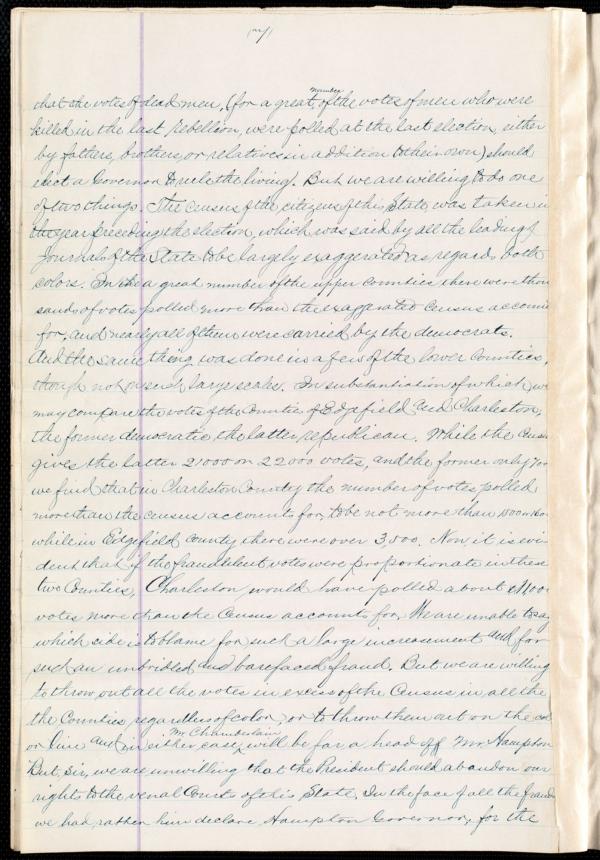 (7)
that the votes of dead men, (for a great number of the votes of men who were
killed in the last rebellion, were polled at the last election, either
by fathers, brothers, or relatives in addition to their own) should
elect a Governor to rule the living. But we are willing to do one
of two things. The census of the citizens of this State was taken in
the year preceding the election, which was said by all the leading
Journals of the State to be largely exaggerated as regards both
colors. In a great number of the upper counties there were thou
sands of votes polled more than the exaggerated census account
for, and nearly all of them were carried by the democrats.
And the same thing was done in a few of the lower Counties,
though not on such large scale. In substantiation of which we
may compare the votes of the Counties of Edgefield and Charleston,
the former democratic, the latter republican. While the Census
gives the latter 21000 or 22000 votes, and the former only
we find that in Charleston County the number of votes polled
more than the census accounts for, to be not more than
while in Edgefield County there were over 3,000. Now it is evi
dent that if the fraudulent votes were proportionate in these
two Counties, Charleston would have polled about
votes more than the Census accounts for. We are unable to say
which side is to blame for such a large increasement and for
such an unbridled and barefaced fraud. But we are willing
to throw out all the votes in excess of the Census in all the
the Counties regardless of color, or to throw them out on the col
or line and in either case, Mr Chamberlain will be far a head of Mr. Hampton
But, Sir, we are unwilling that the President should abandon our
rights to the venal Courts of this State. In the face of all the frauds
we had rather him declare Hampton Governor, for the